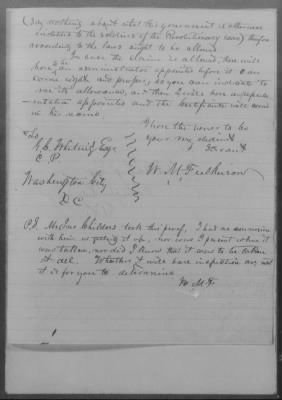 (say nothing about what this government is otherwise
indebted to the soldiers of the Revolutionary war) therefore
accordingly to the laws ought to be allowed
In case the claim is allowed, there will
have an administrator appointed before it can
come right and proper, so you can indicate to
me its allowance, and then I will have a repre-
-sentative appointed and the Certificate will come
in his name.
I have the honor to be
your very obedient
Servant
W. M. Fulkerson
To
G. C. Whiting Esqr
C P
Washington City
D C
P.S. Mr Jno Childers took this proof, I had no connexion
with him in getting it up, nor was I present when it
was taken, nor did I know that it was to be taken
at all. Whether it will bear inspection or not
it is for you to determine
W. M. F.